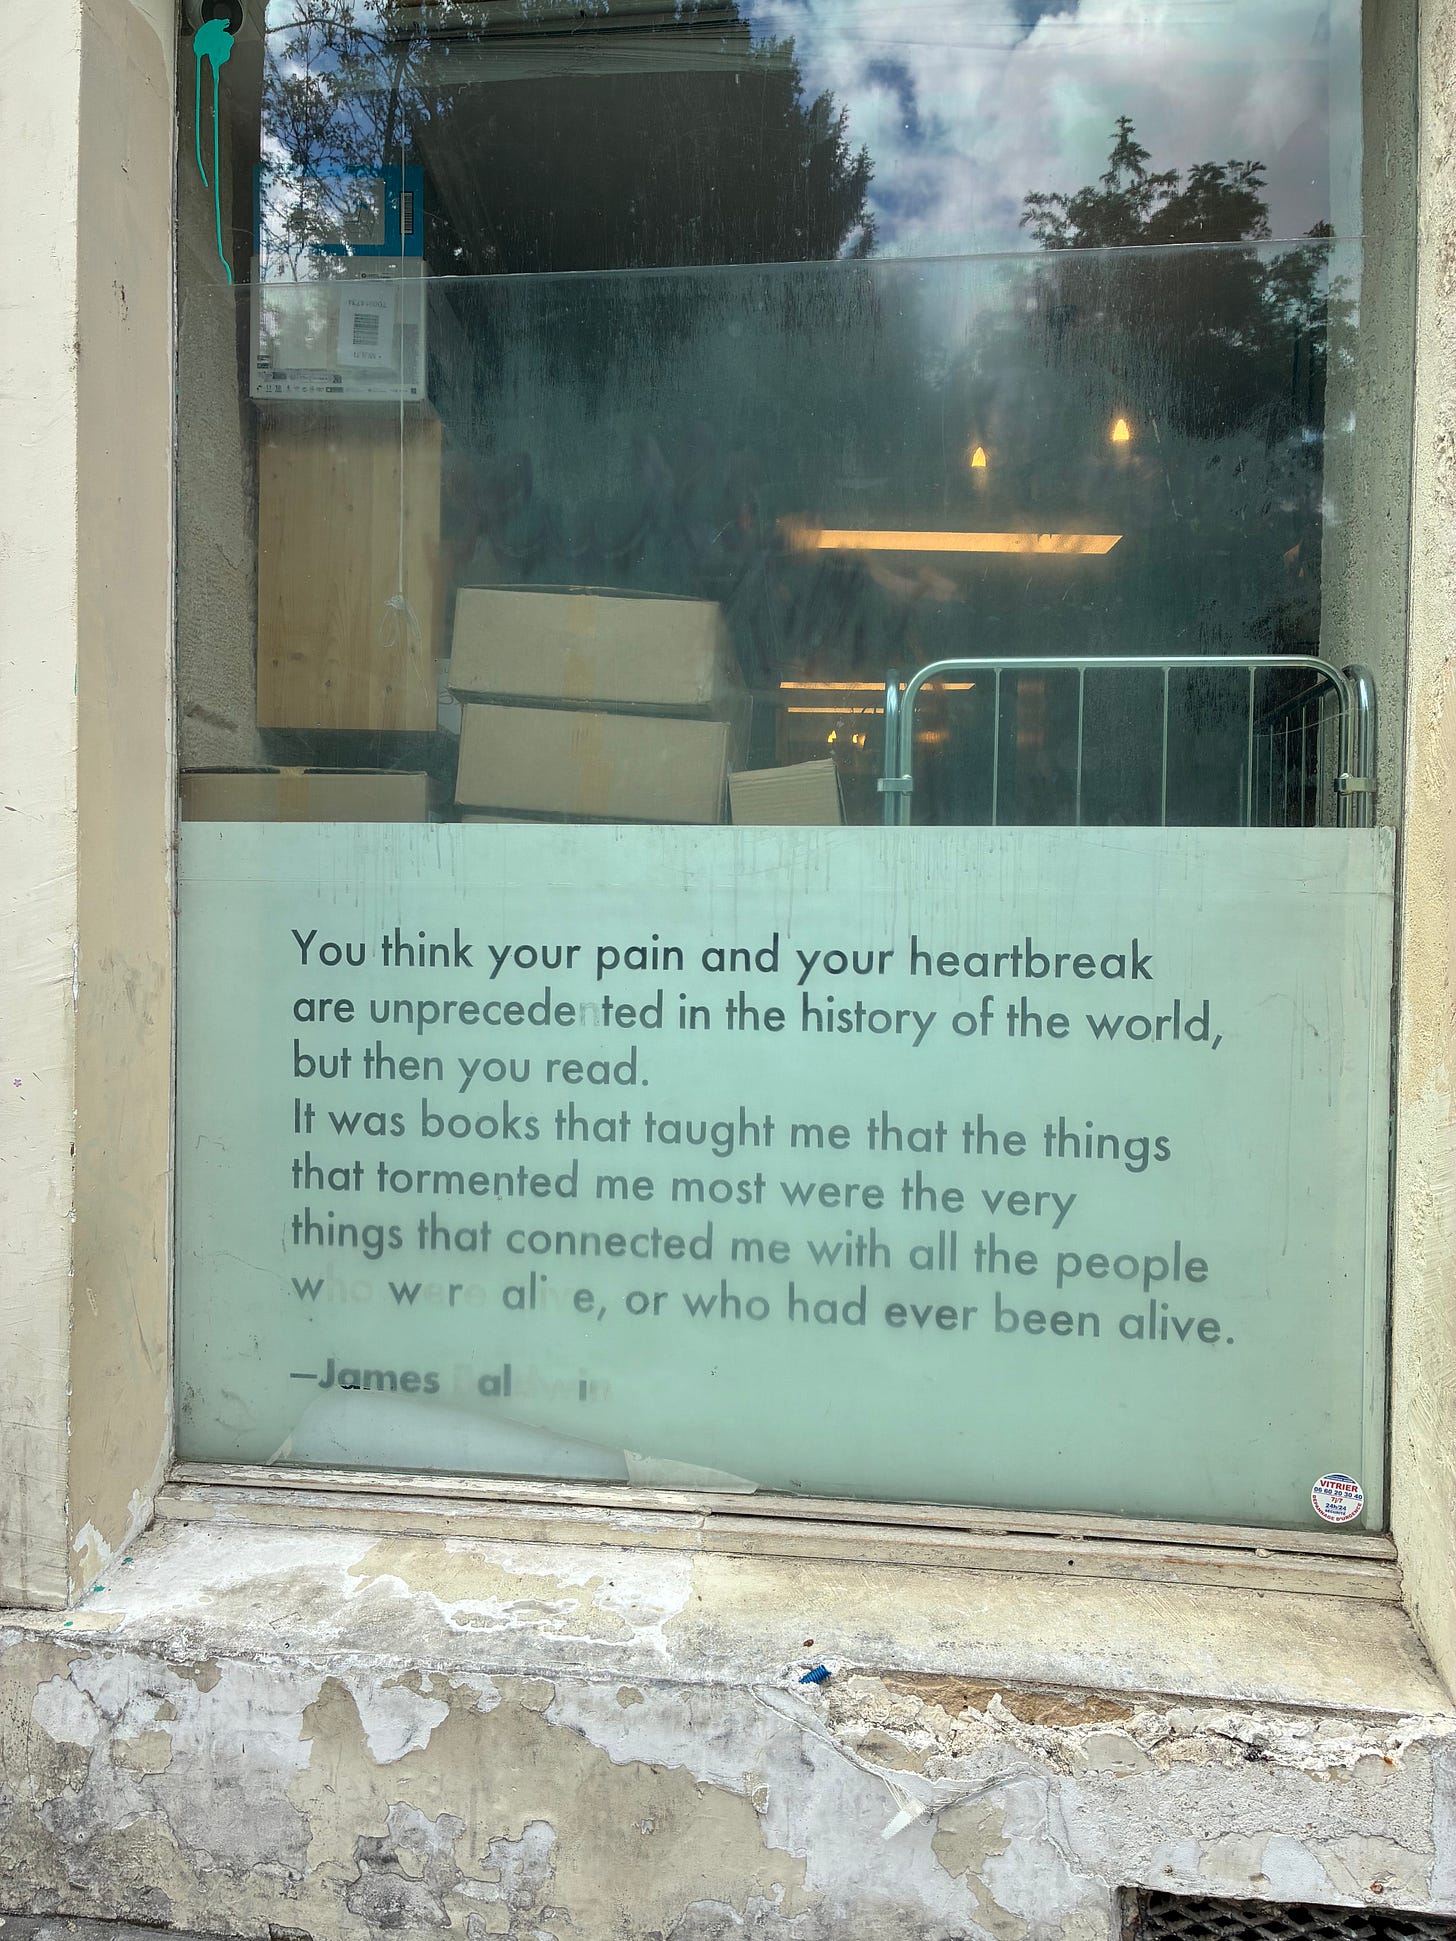 You think your pain and your heartbreak
are unprecedented in the history of the world,
but then you read.
It was books that taught me that the things
that tormented me most were the very
things that connected me with all the people
who were alive, or who had ever been alive.
—James Baldwin
VITRIER
06 60 20 30 40
7j/7
24h/24
DÉPANNAGE D'URGENCE